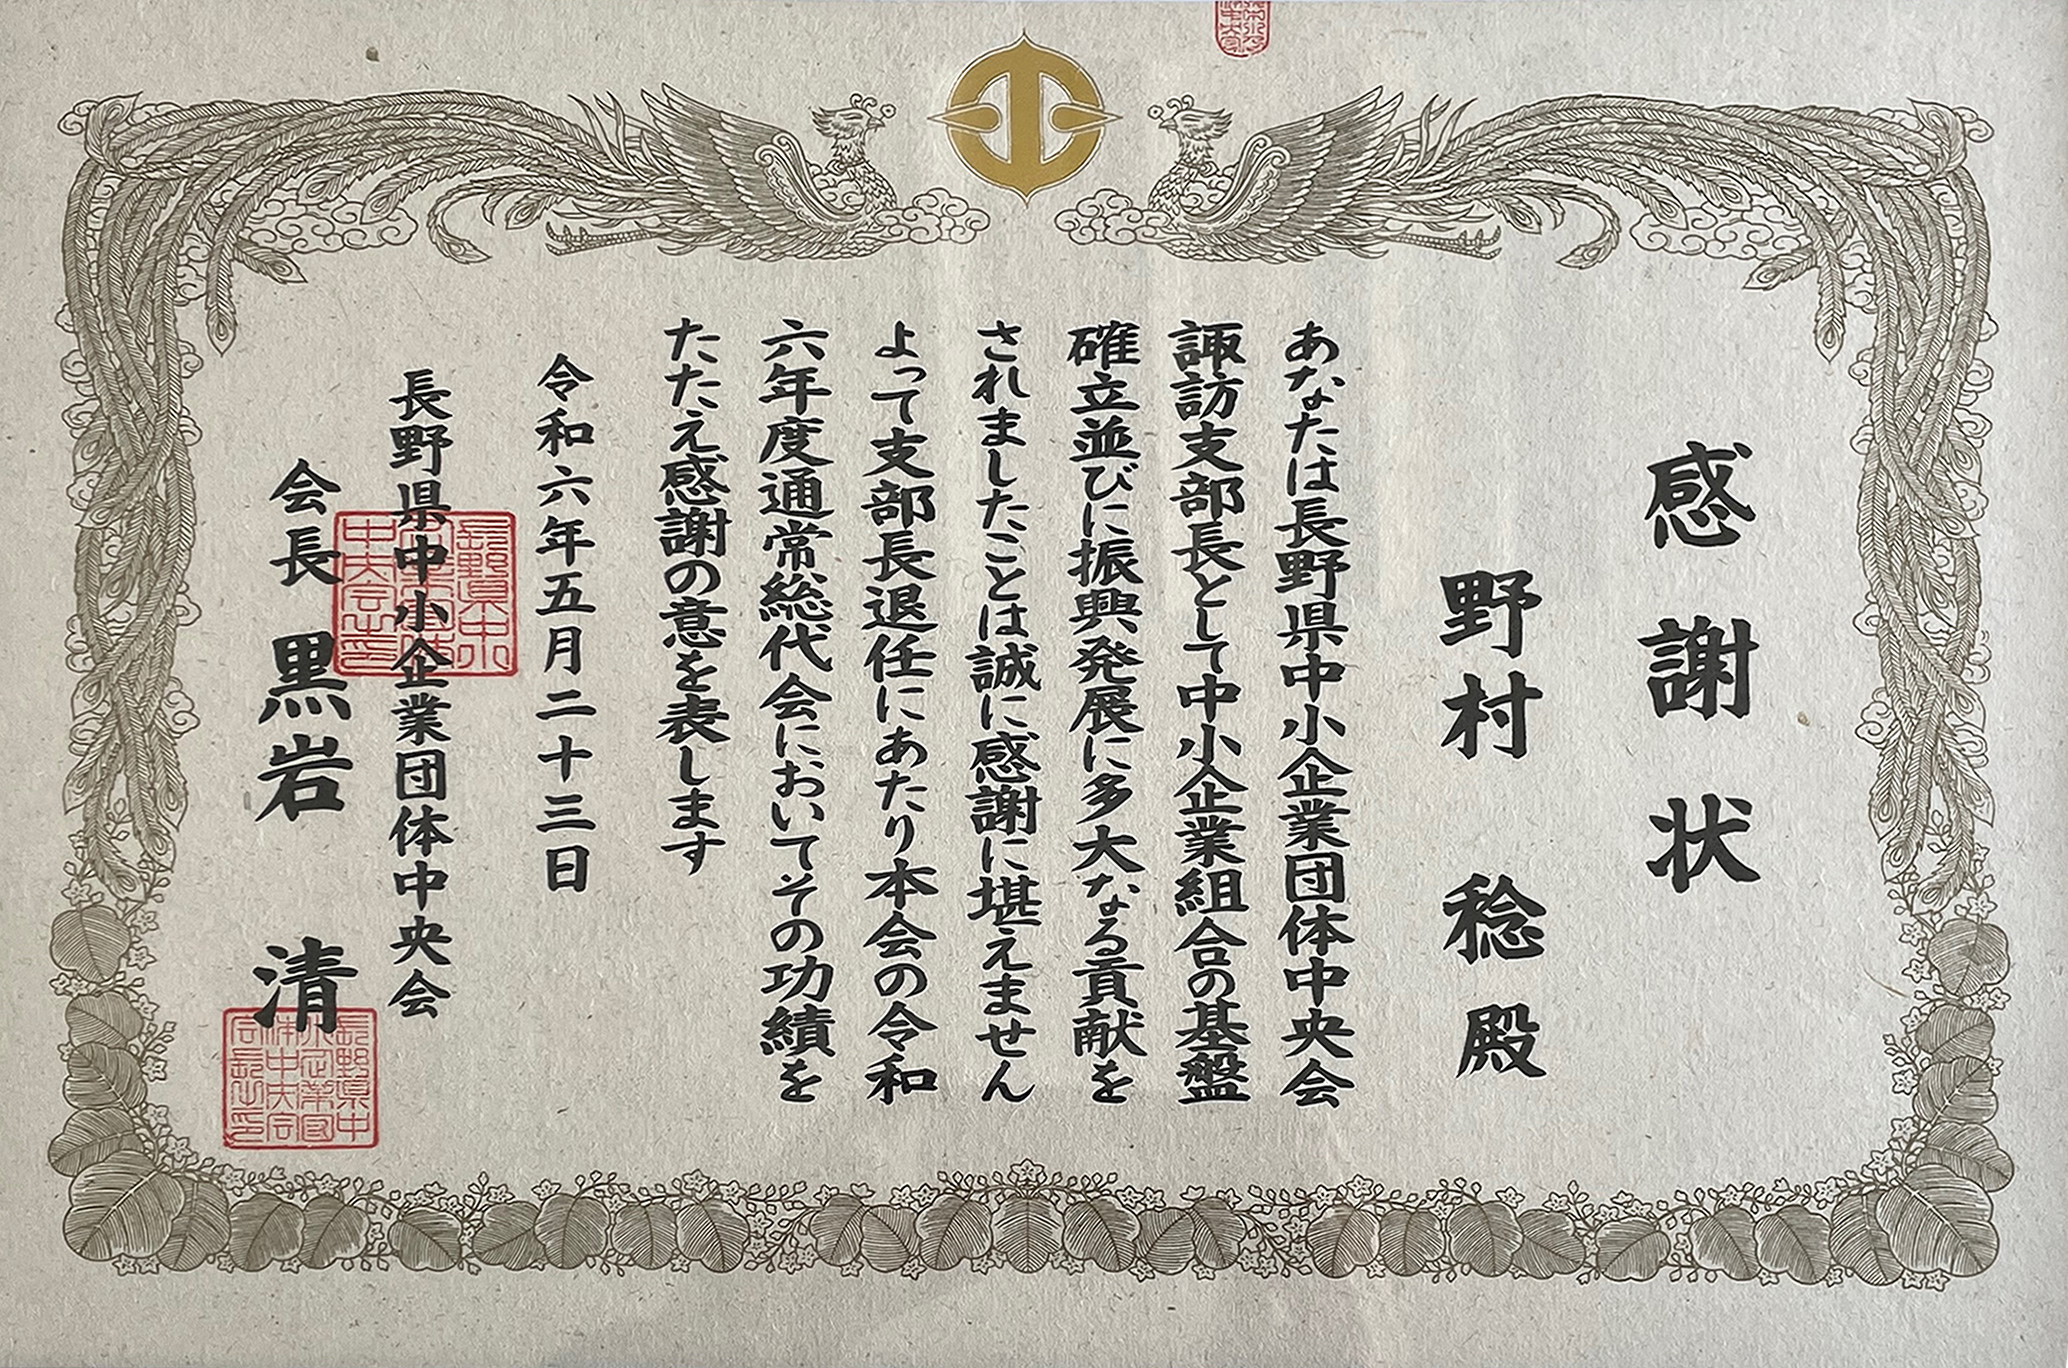 感謝状
野村 稔 殿
あなたは長野県中小企業団体中央会
諏訪支部長として中小企業組合の基盤
確立並びに振興発展に多大なる貢献を
されましたことは誠に感謝に堪えません
よって支部長退任にあたり本会の令和
六年度通常総代会においてその功績を
たたえ感謝の意を表します
令和六年五月二十三日
長野県中小企業団体中央会
会長 黒岩 清